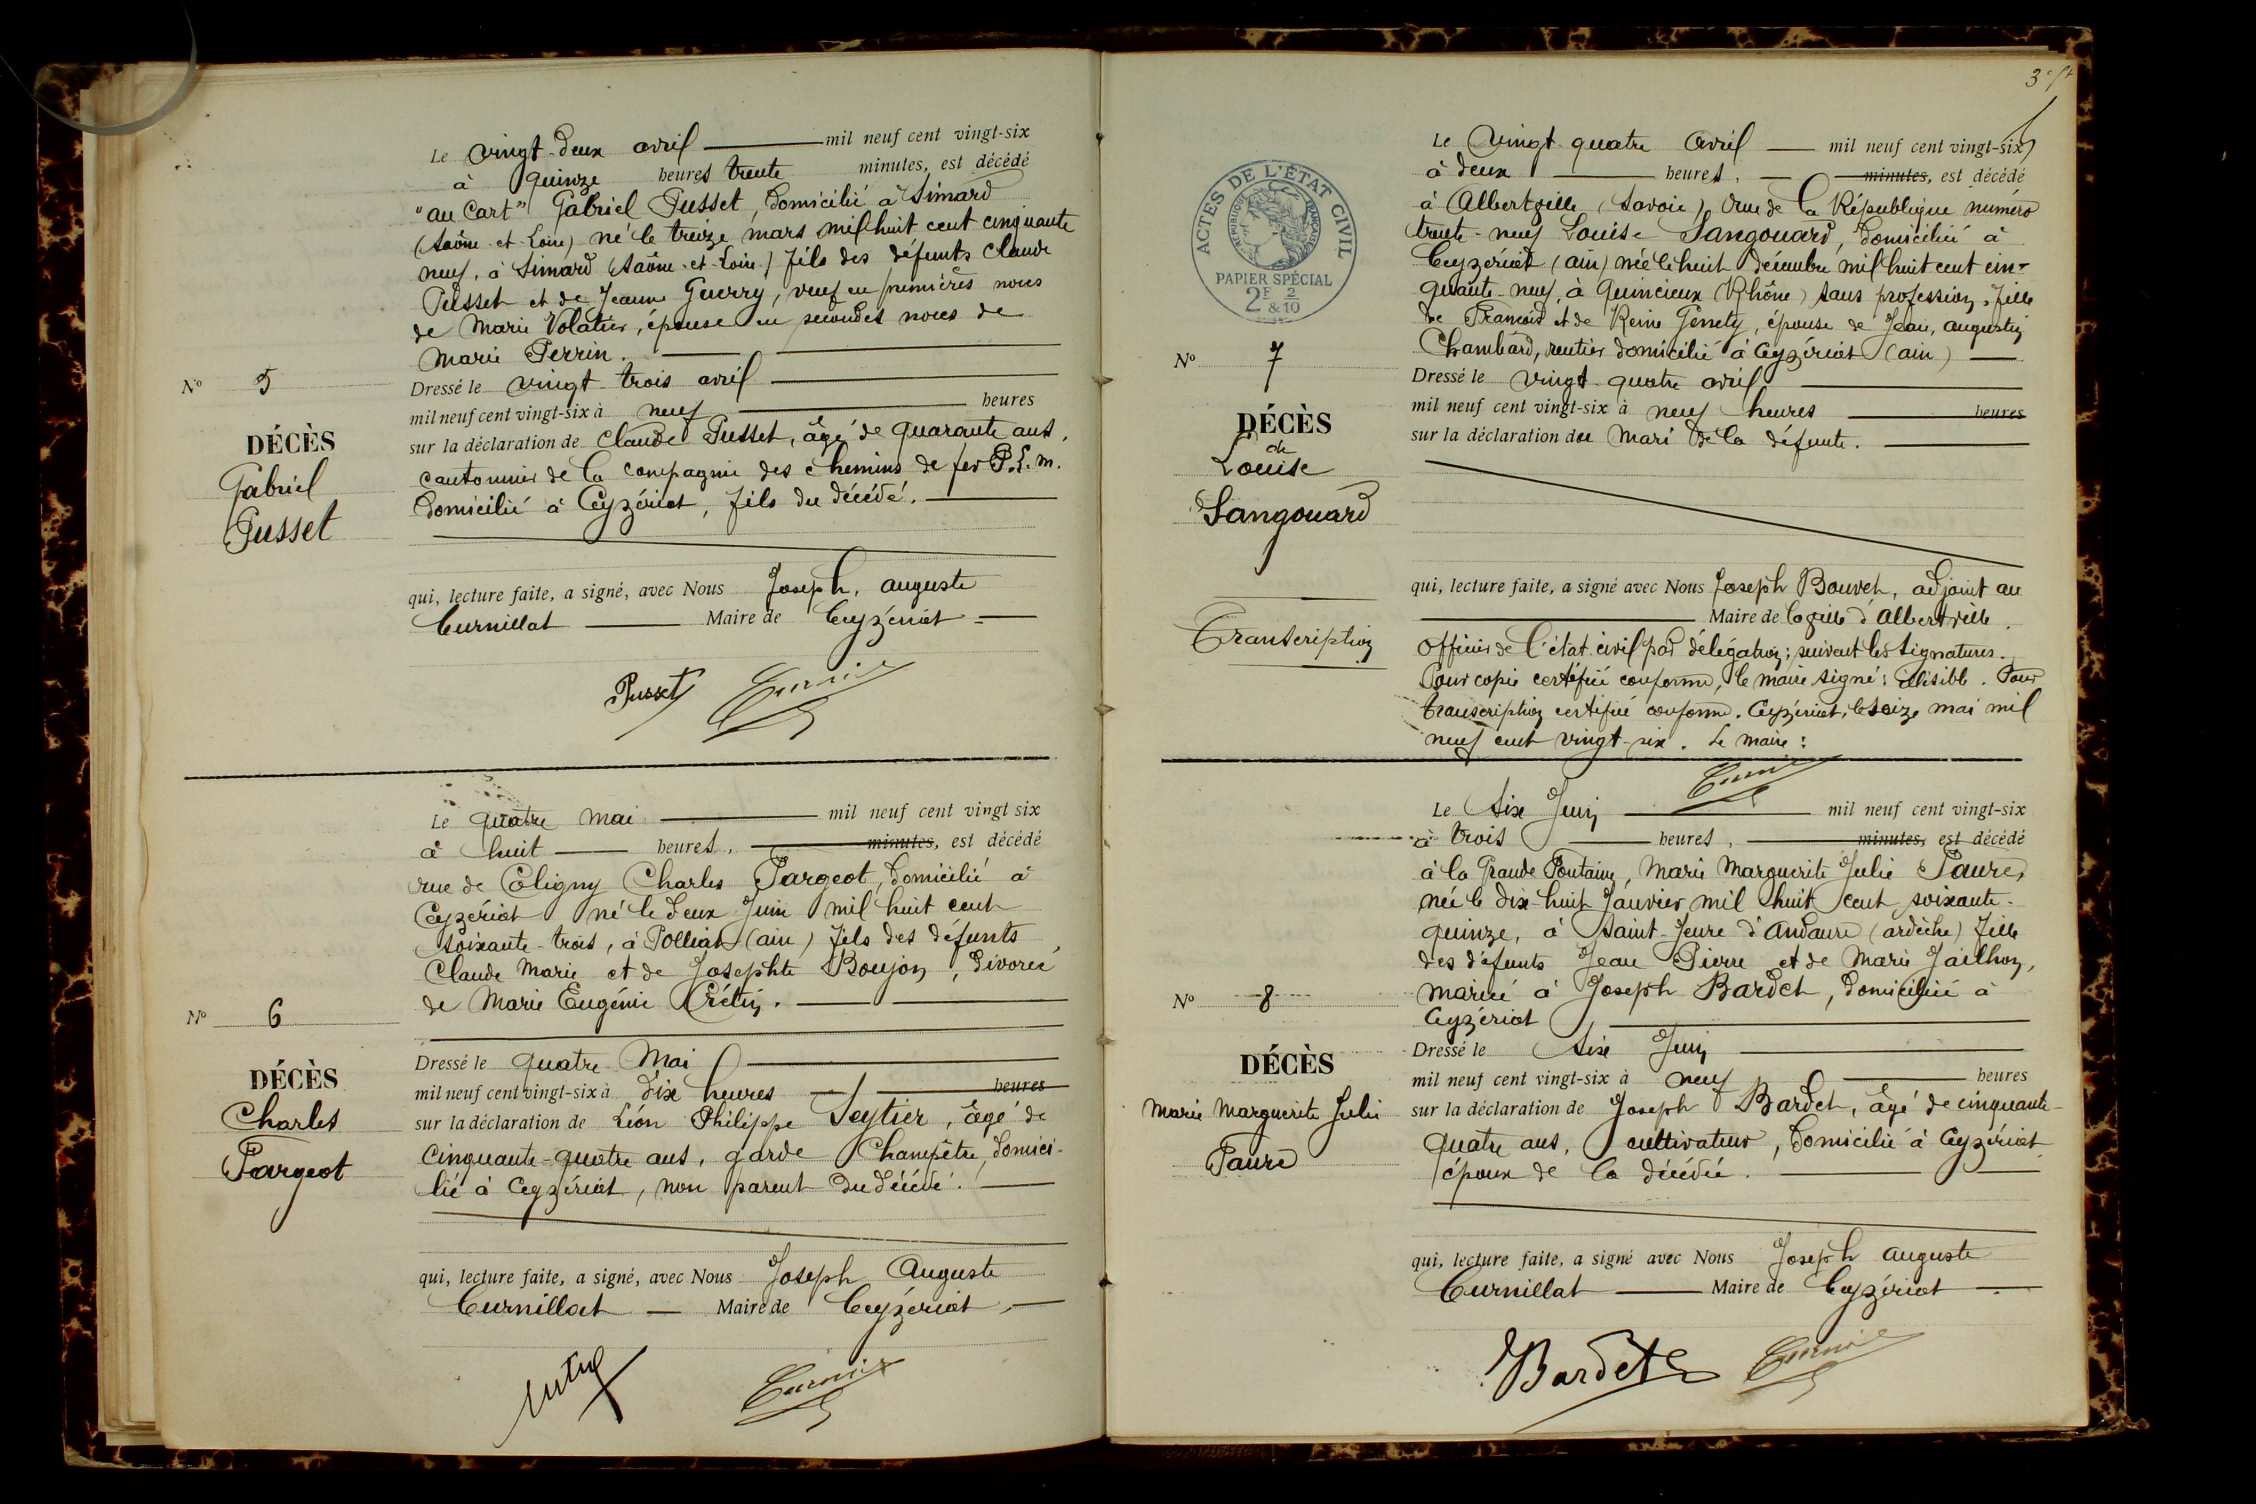 Le vingt-deux avril mil neuf cent vingt-six
à quinze heures trente minutes, est décédé
"au Cart" Gabriel Pusset, domicilié à Simard
(Saône-et-Loire) né le treize mars mil huit cent cinquante
neuf, à Simard (Saône-et-Loire) fils des défunts Claude
Pusset et de Jeanne Guerry, veuf en premières noces
de Marie Volatier, épouse en secondes noces de
Marie Perrin.
Nº 5
DÉCÈS
Gabriel
Pusset
Dressé le vingt-trois avril
mil neuf cent vingt-six à neuf heures
sur la déclaration de Claude Pusset, âgé de quarante ans,
cantonnier de la compagnie des chemins de fer P.L.M.
domicilié à Ceyzériat, fils du décédé.
qui, lecture faite, a signé, avec Nous Joseph, Auguste
Curnillat Maire de Ceyzériat
Pusset
Le quatre mai mil neuf cent vingt six
à huit heures, minutes, est décédé
rue de Coligny Charles Pargeot, domicilié à
Ceyzériat né le deux Juin mil huit cent
soixante-trois, à Polliat (ain) fils des défunts
Claude Marie et de Josephte Boujon, divorcé
de Marie Eugénie Crétin.
Nº 6
DÉCÈS
Charles
Pargeot
Dressé le quatre Mai
mil neuf cent vingt-six à dix heures heures
sur la déclaration de Léon Philippe Seytier, âgé de
cinquante-quatre ans, garde Champêtre, domici-
lié à Ceyzériat, non parent du décédé.
qui, lecture faite, a signé, avec Nous Joseph Auguste
Curnillat Maire de Ceyzériat,
Le vingt-quatre avril mil neuf cent vingt-six
à deux heures, minutes, est décédé
à Albertville (Savoie) rue de la République numéro
trente-neuf Louise Sangouard, domiciliée à
Ceyzériat (ain) née le huit décembre mil huit cent cin-
quante-neuf, à Quincieux (Rhône) sans profession, fille
de François et de Reine Genety, épouse de Jean, Augustin
Chambard, rentier domicilié à Ceyzériat (ain)
ACTES DE L'ÉTAT CIVIL
RÉPUBLIQUE FRANÇAISE
PAPIER SPÉCIAL
2F 2 & 10
Nº 7
DÉCÈS
de
Louise
Sangouard
Transcription
Dressé le vingt-quatre avril
mil neuf cent vingt-six à neuf heures heures
sur la déclaration du Mari de la défunte.
qui, lecture faite, a signé avec Nous Joseph Bouvet, adjoint au
Maire de la ville d'Albertville.
Officier de l'état-civil par délégation; suivent les signatures.
Pour copie certifiée conforme, le maire signé: illisible. Pour
transcription certifiée conforme. Ceyzériat, le seize mai mil
neuf cent vingt-six. Le Maire:
Le six Juin mil neuf cent vingt-six
à trois heures, minutes, est décédé
à la Grande Fontaine, Marie Marguerite Julie Faure,
née le dix-huit Janvier mil huit cent soixante-
quinze, à Saint-Jeure d'Andaure (ardèche) fille
des défunts Jean Pierre et de Marie Jailhon,
mariée à Joseph Bardet, domiciliée à
Ceyzériat
Nº 8
DÉCÈS
Marie Marguerite Julie
Faure
Dressé le six Juin
mil neuf cent vingt-six à neuf heures
sur la déclaration de Joseph Bardet, âgé de cinquante-
quatre ans, cultivateur, domicilié à Ceyzériat
époux de la décédée.
qui, lecture faite, a signé avec Nous Joseph Auguste
Curnillat Maire de Ceyzériat
Bardet